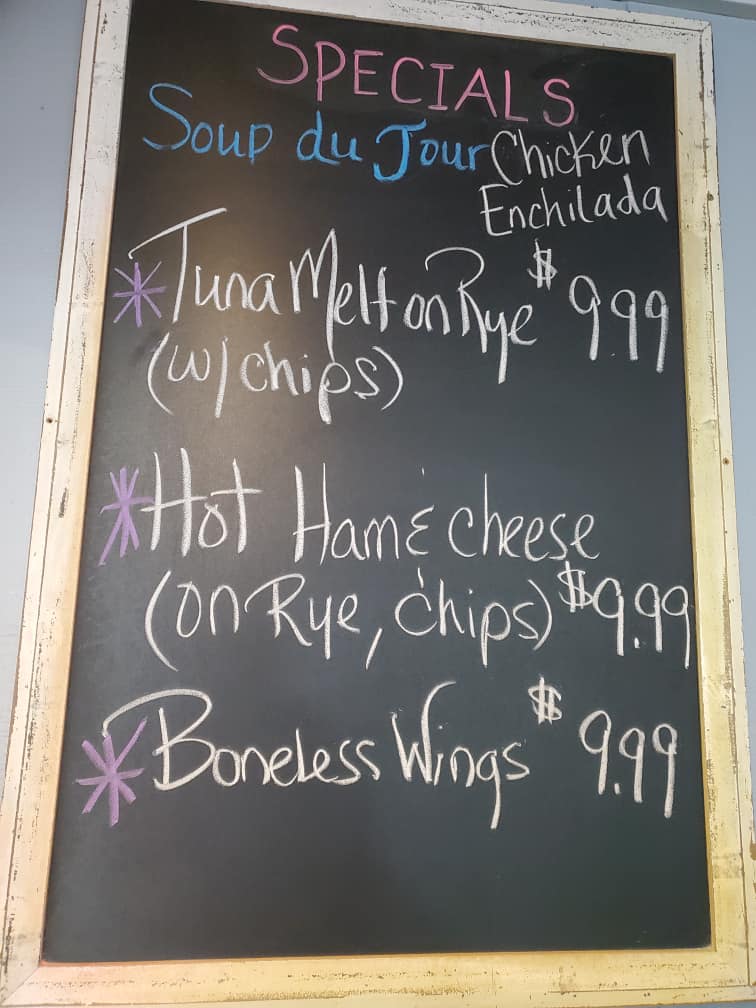 SPECIALS
Soup du Jour Chicken
Enchilada
*Tuna Melt on Rye $9.99
(w/chips)
*Hot Ham & cheese
(on Rye, chips) $9.99
*Boneless Wings $9.99